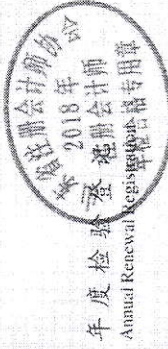 年度检验登记
Annual Renewal Registration
注册会计师协会
2018 年
注册会计师
年检合格专用章